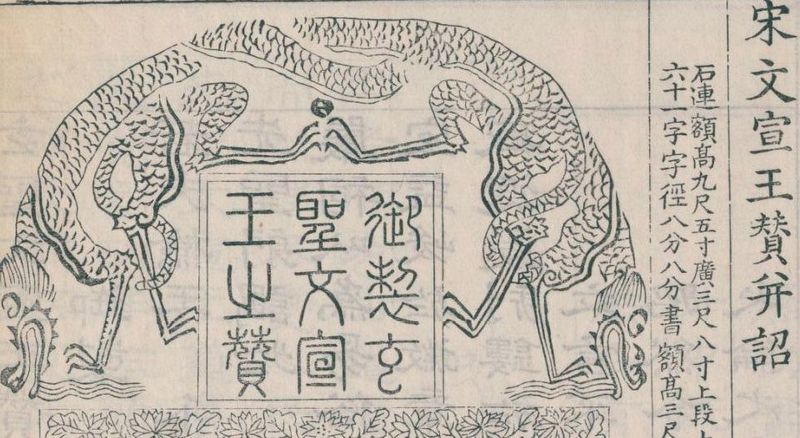 宋文宣王賛并詔
石連額髙九尺五寸廣三尺八寸上段
六十一字字徑八分八分書 額髙三尺
御製玄
聖文宣
王之贊